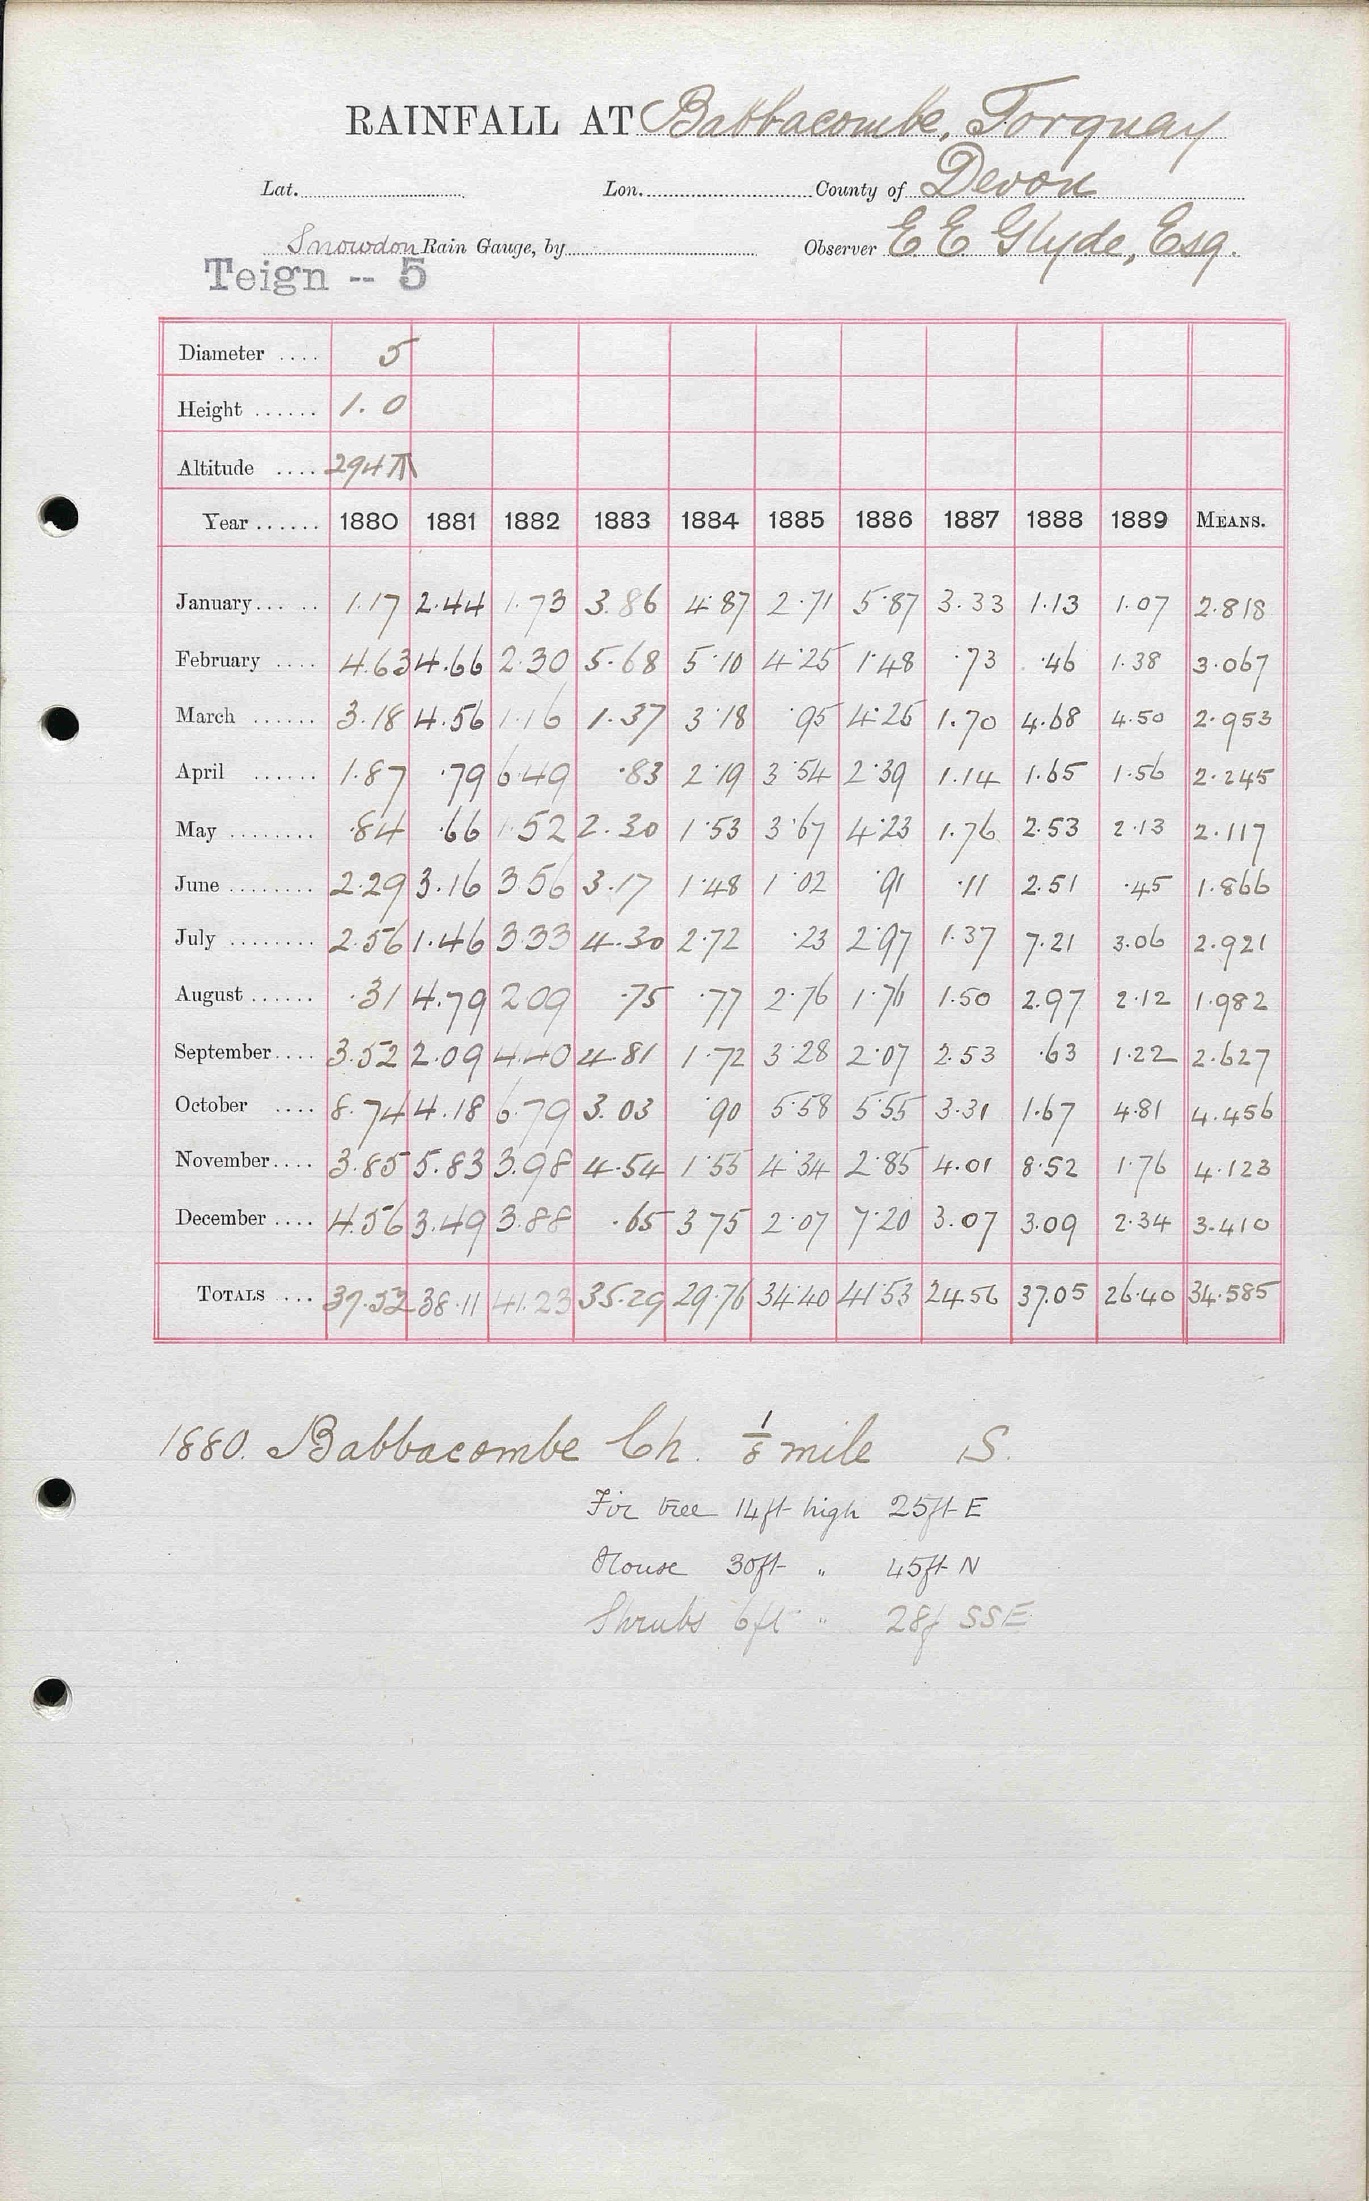 RAINFALL AT Babbacombe, Torquay
Lat. Lon. County of Devon
Snowdon Rain Gauge, by Observer E E Glyde, Esq.
Teign -- 5
Diameter .... 5
Height ...... 1.0
Altitude .... 294 T
Year ...... 1880 1881 1882 1883 1884 1885 1886 1887 1888 1889 MEANS.
January... .. 1.17 2.44 1.73 3.86 4.87 2.71 5.87 3.33 1.13 1.07 2.818
February .... 4.63 4.66 2.30 5.68 5.10 4.25 1.48 .73 .46 1.38 3.067
March ...... 3.18 4.56 1.16 1.37 3.18 .95 4.25 1.70 4.68 4.50 2.953
April ...... 1.87 .79 6.49 .83 2.19 3.54 2.39 1.14 1.65 1.56 2.245
May ........ .84 .66 1.52 2.30 1.53 3.67 4.23 1.76 2.53 2.13 2.117
June ........ 2.29 3.16 3.56 3.17 1.48 1.02 .91 .11 2.51 .45 1.866
July ........ 2.56 1.46 3.33 4.30 2.72 .23 2.97 1.37 7.21 3.06 2.921
August ...... .31 4.79 2.09 .75 .77 2.76 1.76 1.50 2.97 2.12 1.982
September.... 3.52 2.09 4.40 4.81 1.72 3.28 2.07 2.53 .63 1.22 2.627
October .... 8.74 4.18 6.79 3.03 .90 5.58 5.55 3.31 1.67 4.81 4.456
November.... 3.85 5.83 3.98 4.54 1.55 4.34 2.85 4.01 8.52 1.76 4.123
December .... 4.56 3.49 3.88 .65 3 75 2.07 7.20 3.07 3.09 2.34 3.410
TOTALS ... 37.52 38.11 41.23 35.29 29.76 34.40 41.53 24.56 37.05 26.40 34.585
1880. Babbacombe Ch. 1/8 mile S.
Fir tree 14ft high 25ft E
House 30ft " 45ft N
Shrubs 6ft " 28f SSE